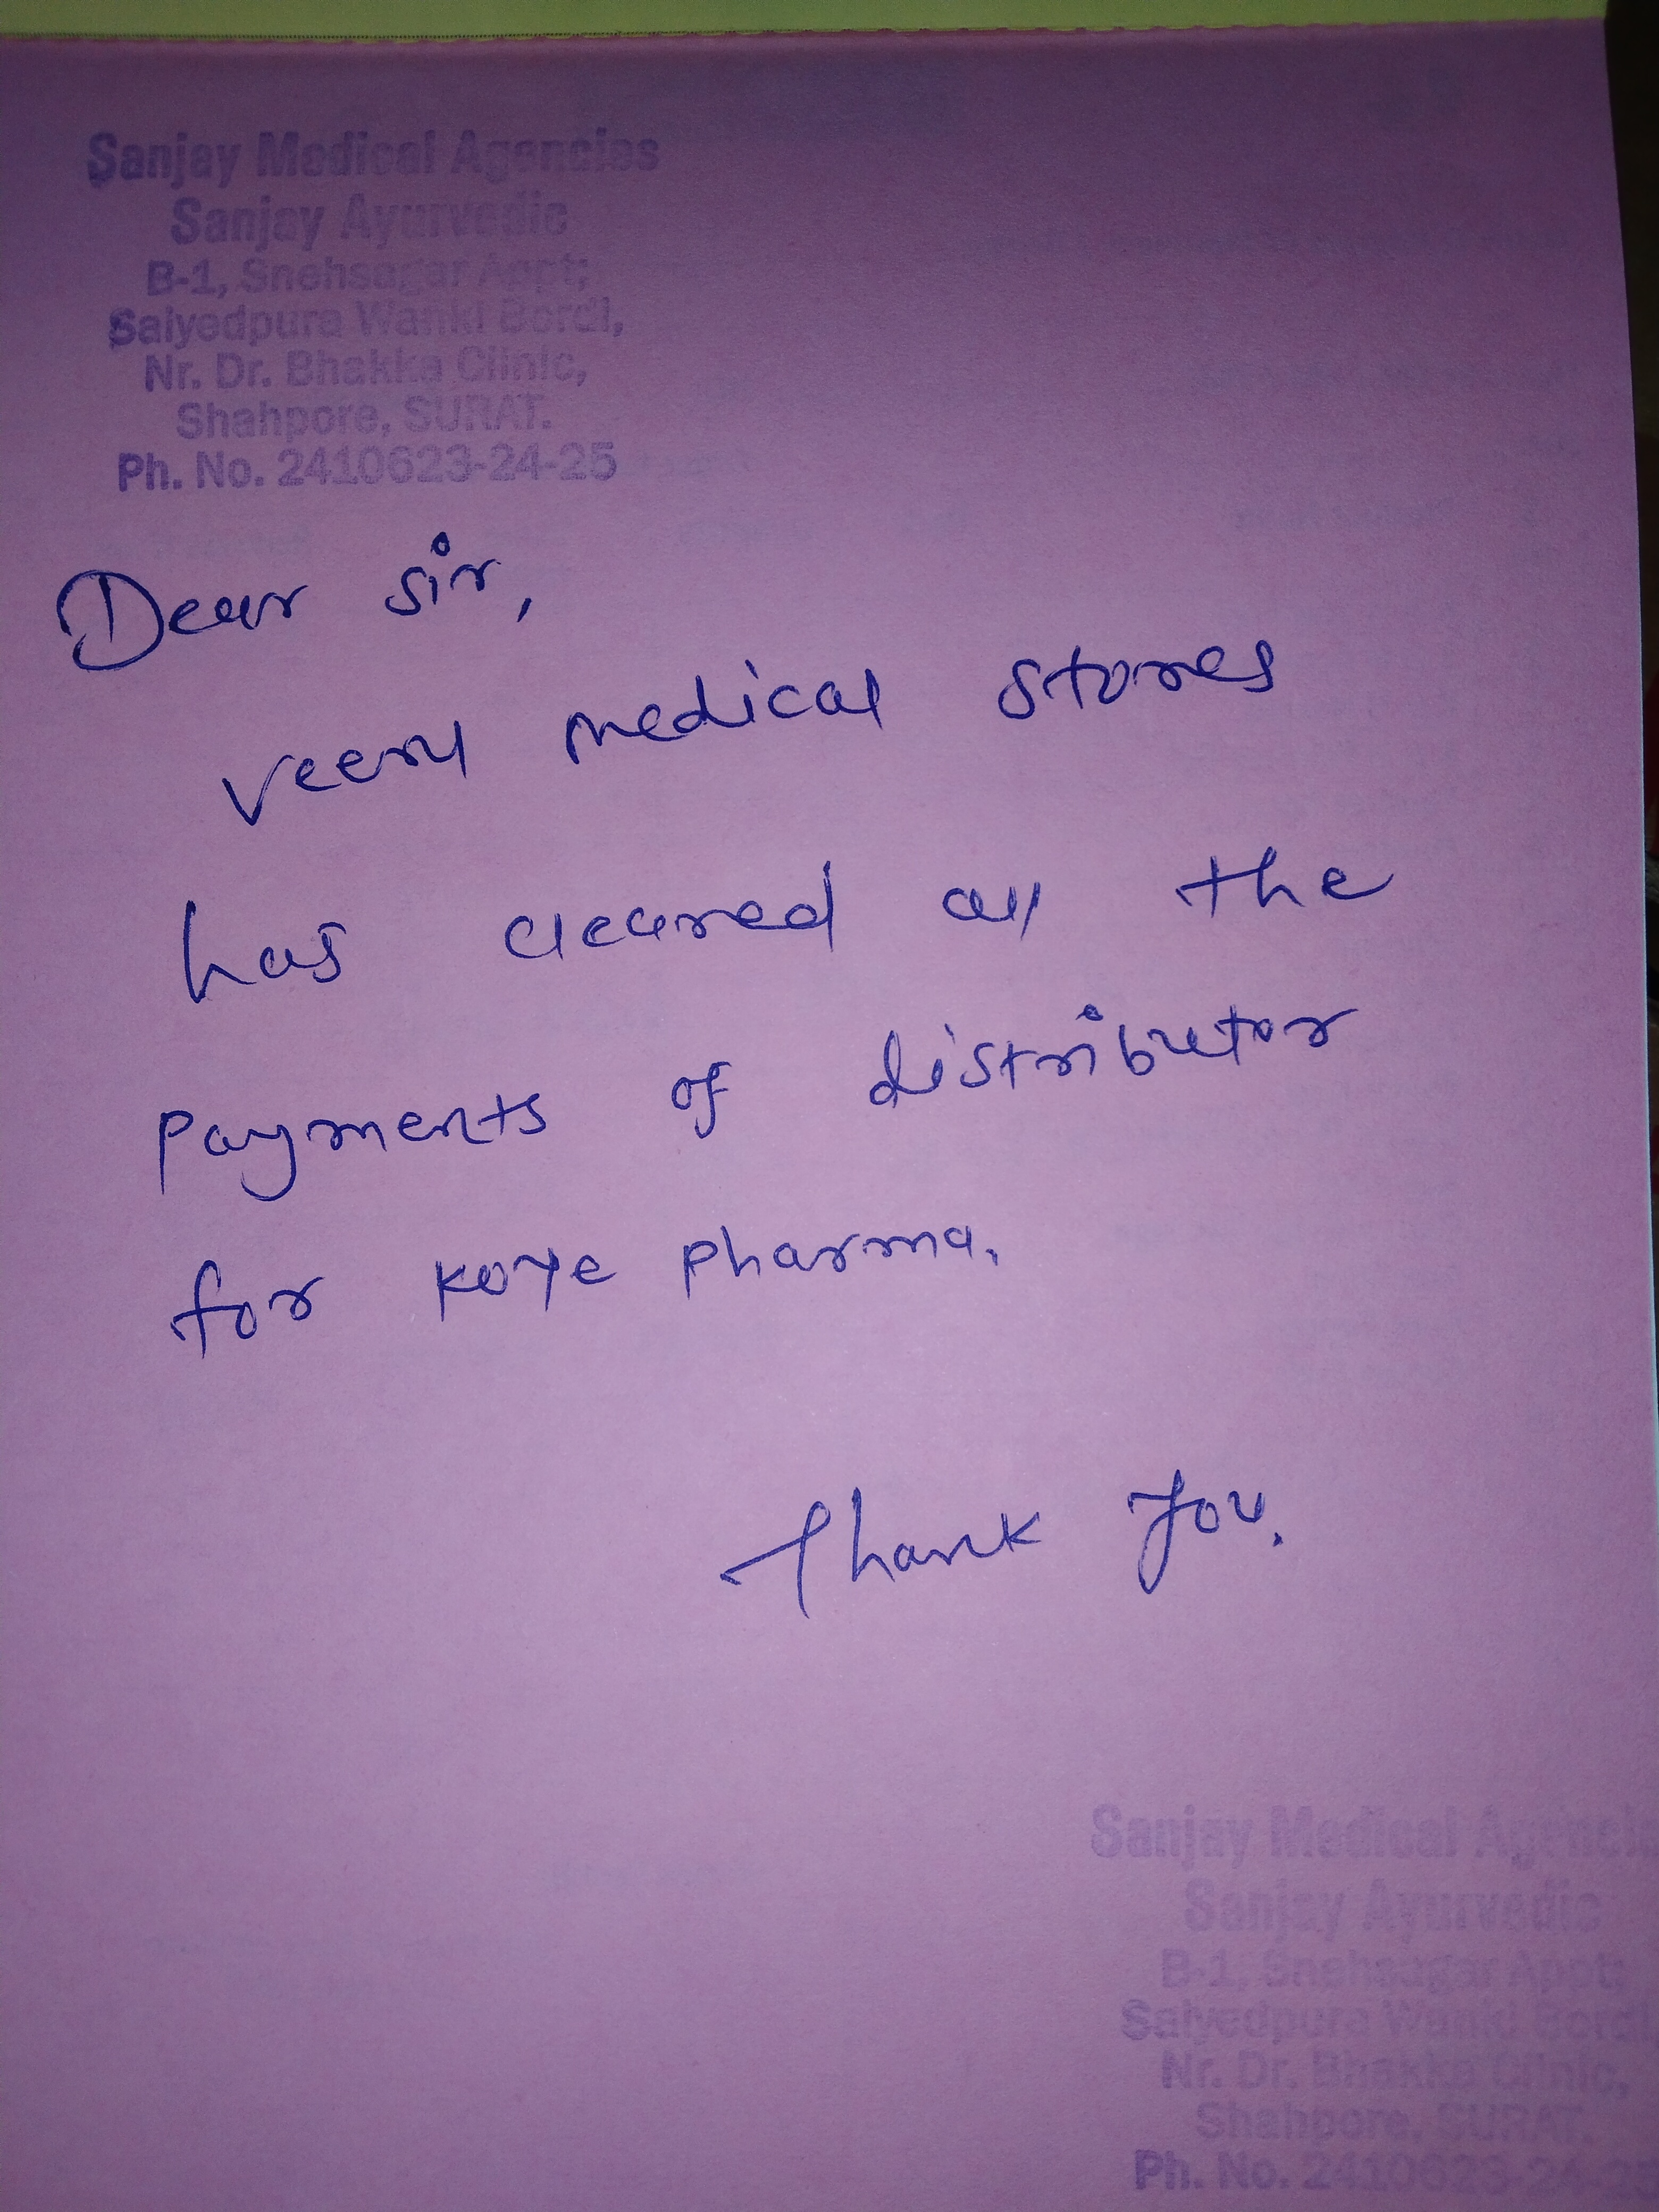 Sanjay Medical Agencies
Sanjay Ayurvedic
B-1, Snehsagar Appt;
Saiyedpura Wanki Bordi,
Nr. Dr. Bhakka Clinic,
Shahpore, SURAT.
Ph. No. 2410623-24-25
Dear sir,
medical stores
has cleared all the
payments of distributor
for Koye pharma.
Thank You.
Sanjay Medical Agencie
Sanjay Ayurvedic
B-1, Snehsagar Appt;
Saiyedpura Wanki Bordi
Nr. Dr. Bhakka Clinic,
Shahpore, SURAT.
Ph. No. 2410623-24-25